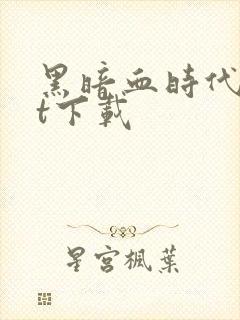 黑暗血時代
t下載
星宮楓葉